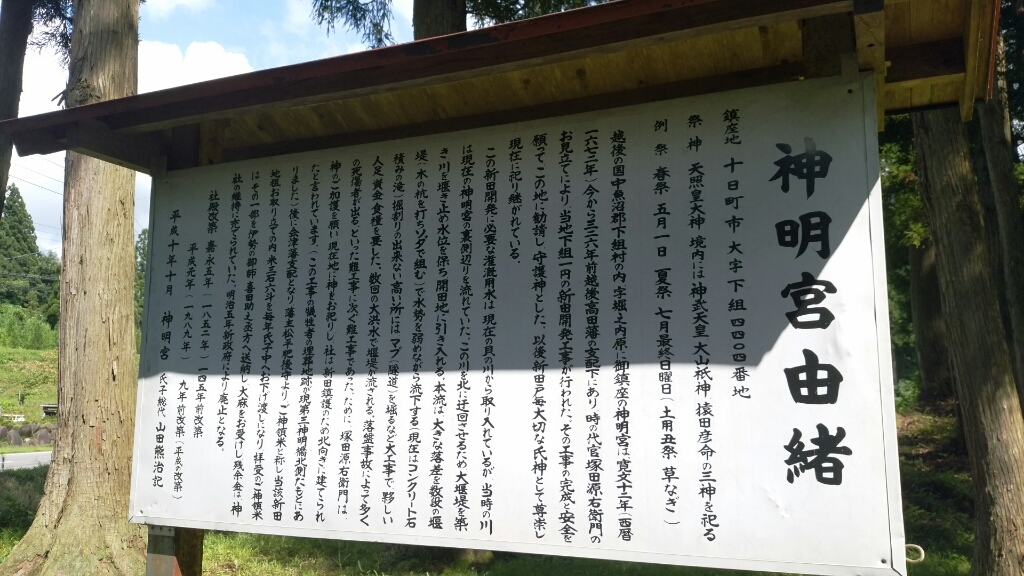 神明宮由緒
鎮座地 十日町市大字下組四四〇四番地
祭神 天照皇大神 境内には神武天皇 大山祇神 猿田彦命の三神を祀る
例祭 春祭 五月一日 夏祭 七月最終日曜日(土用丑祭 草なぎ)
越後の国中魚沼郡下組村の内、字堀ノ上内原に御鎮座の神明宮は寛文十二年(西暦
一六七二年)今から三二六年前越後高田藩の支配下にあり、時の代官塚田源右衛門の
お見立てにより、当地下組一円の新田開発工事が行われた、その工事の完成と安全を
願ってこの地に勧請し、守護神とした、以後新田戸毎大切な氏神として尊崇し
現在に祀り継がれている。
この新田開発に必要な灌漑用水は現在の貝の川から取り入れているが当時の川
は現在の神明宮の裏側辺りを流れていた、この川を北に迂回させるため大堰堤を築
き川を堰き止め水位を保ち開田地に引き入れる、本流は大きな落差を数段の堰
堤(木の杭を打ちソダで組む)で水勢を弱めながら流下する(現在はコンクリート石
積みの滝)堀割りの出来ない高い所にはマブ(隧道)を堀るなど大工事で、夥しい
人足、黄金、食糧を要した、数回の大洪水で堰堤が流される、落盤事故によって多く
の死傷者が出るといった難工事に次ぐ難工事であった、ために、塚田源右衛門は
神のご加護を願い現在地に神をお祀りし、社は新田鎮護のため北向きに建てられ
たと言われています、(この工事の犠牲者の埋葬地跡が現第三神明橋北側たもとにあ
りました)ご後に会津藩支配となり藩主松平肥後守より、ご神領米と称し、当該新田
地租お取り立ての内、米三石六斗を毎年氏子中へお下げ渡しになり、拝受のご神領米
はその一部を伊勢の御師、喜田助之丞方へ送納し、大麻をお受けし残余金は神
社の維持に充てられていた、明治五年新政府により廃止となる。
社殿改築 嘉永五年(一八五二年)一四五年前改築
平成元年(一九八九年) 九年前改築(平成の改築)
平成十年十月 神明宮 氏子総代 山田熊治 記